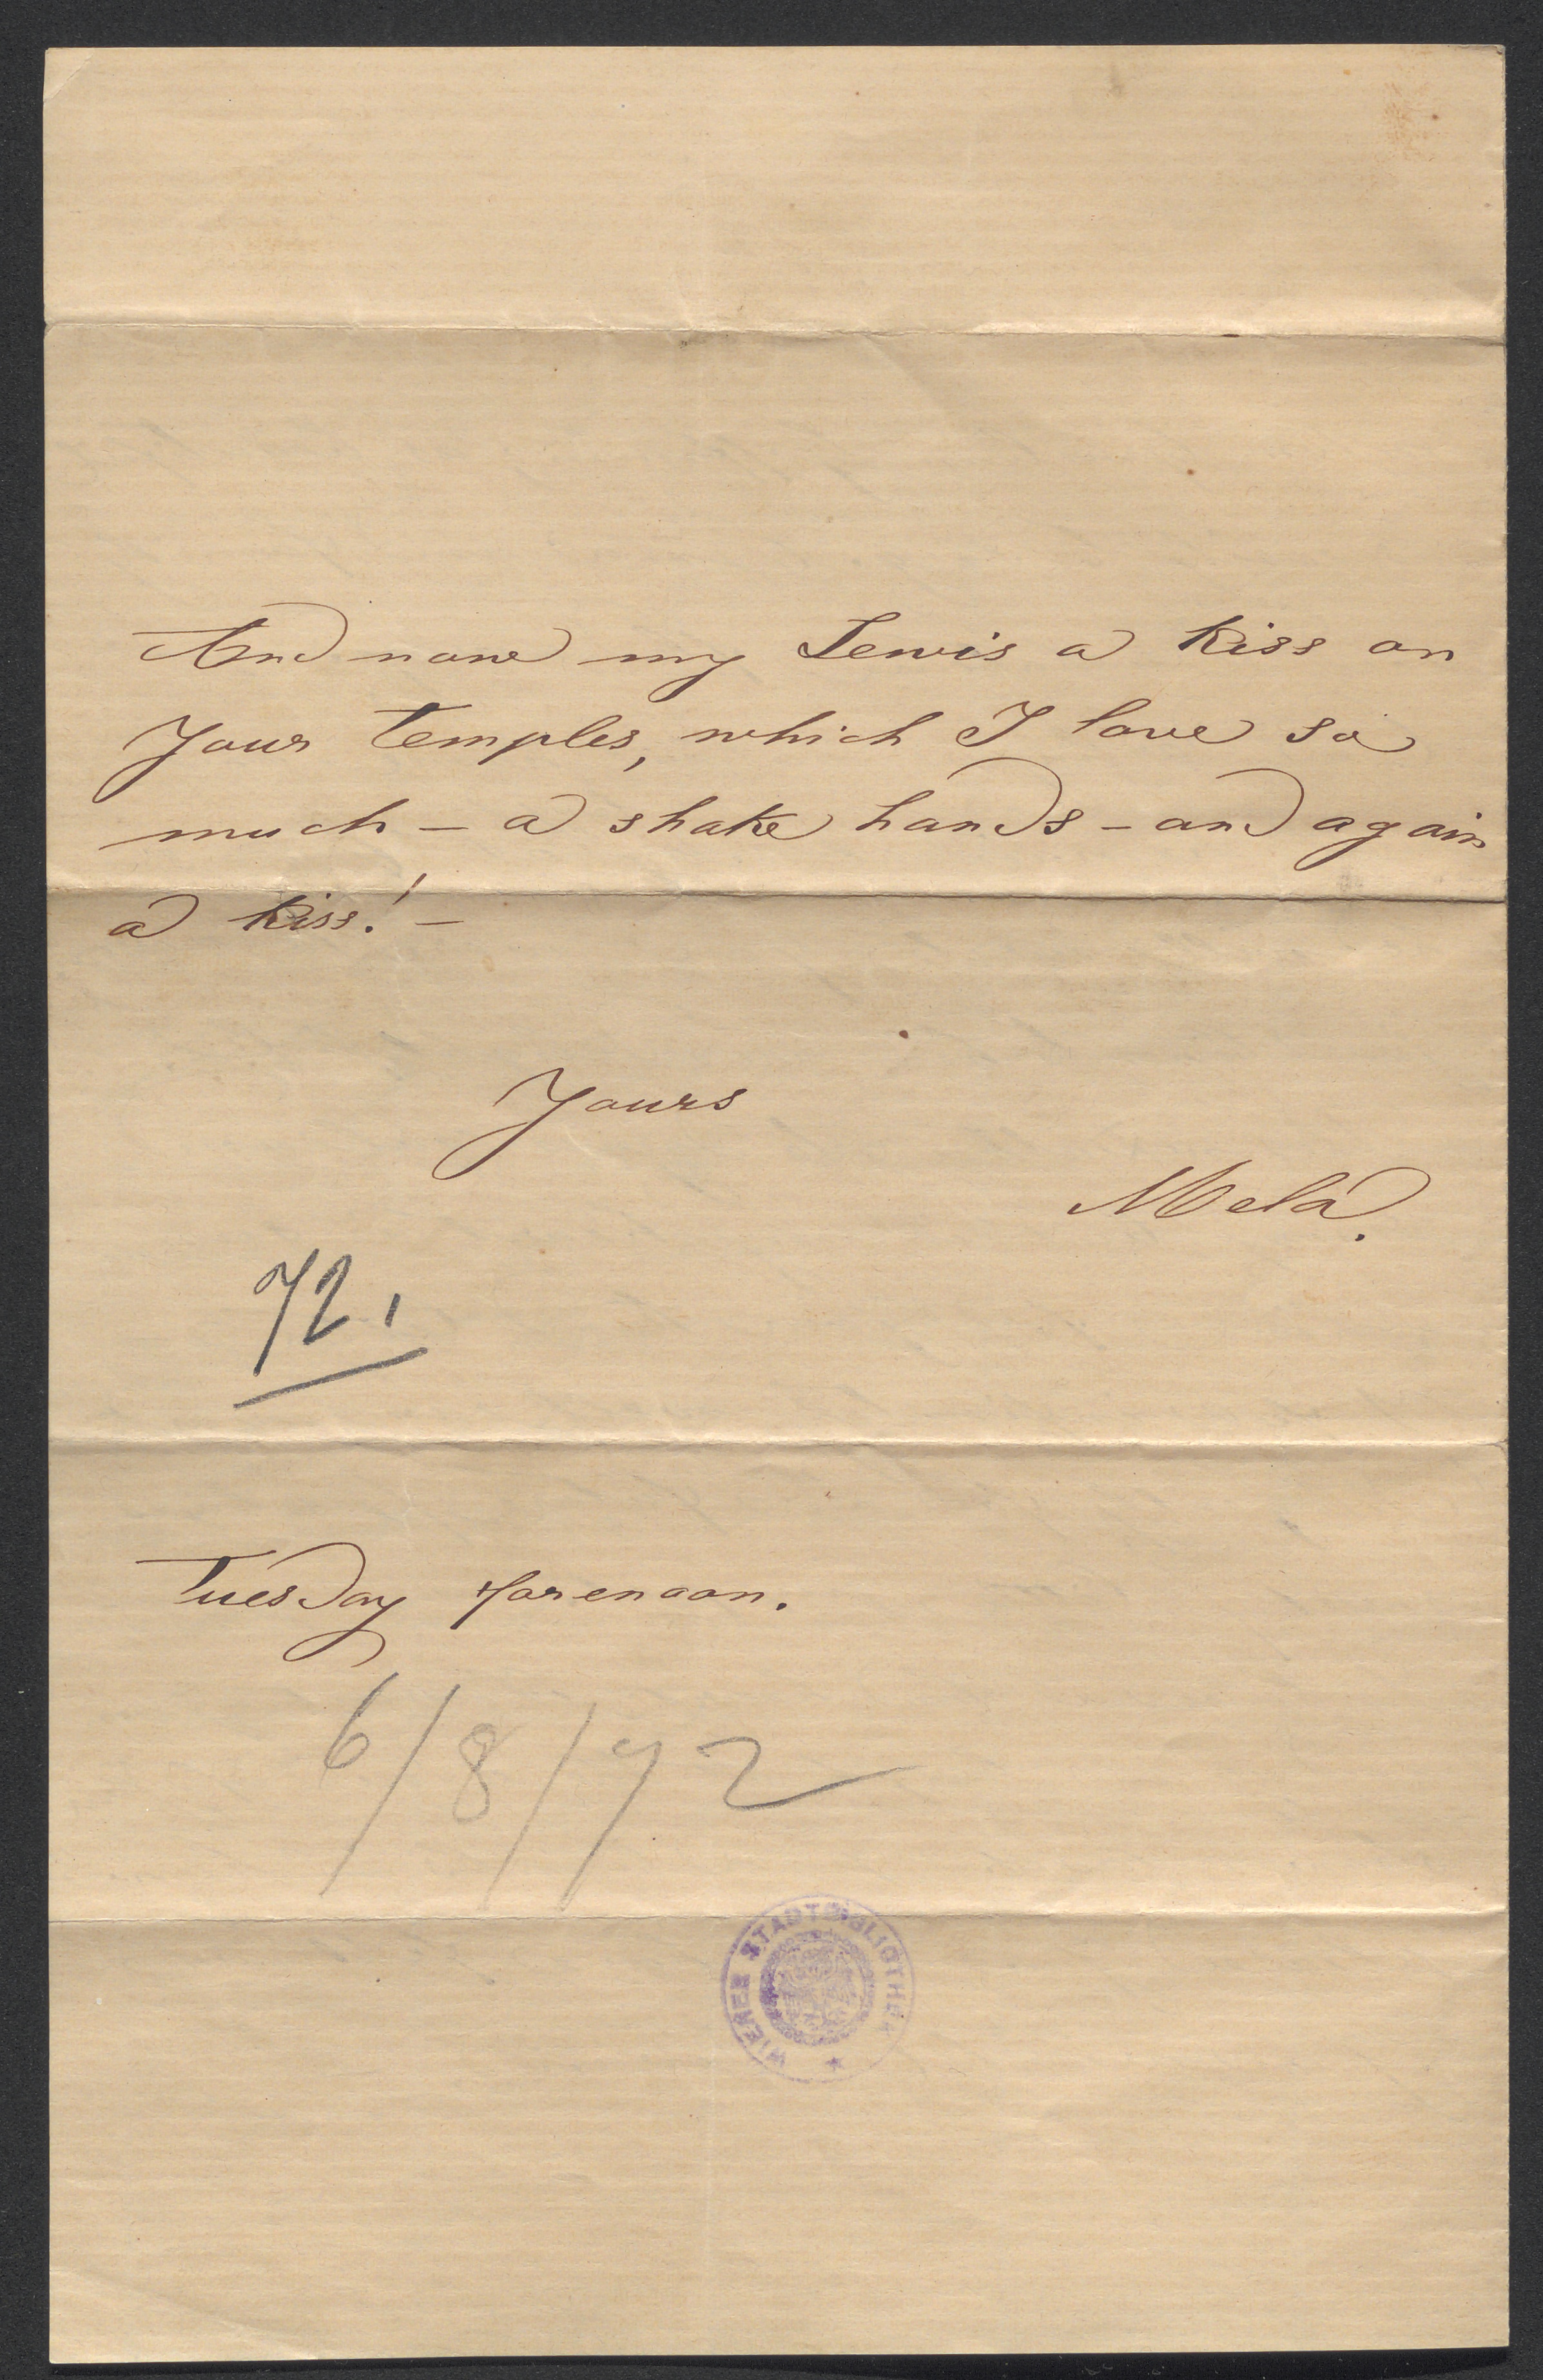 And now my Lewis a kiss on
Your temples, which I love so
much – a shake hands – and again
a kiss! –
Yours
Mela.
72.
Tuesday forenoon.
6/8/72
WIENER STADTBIBLIOTHEK